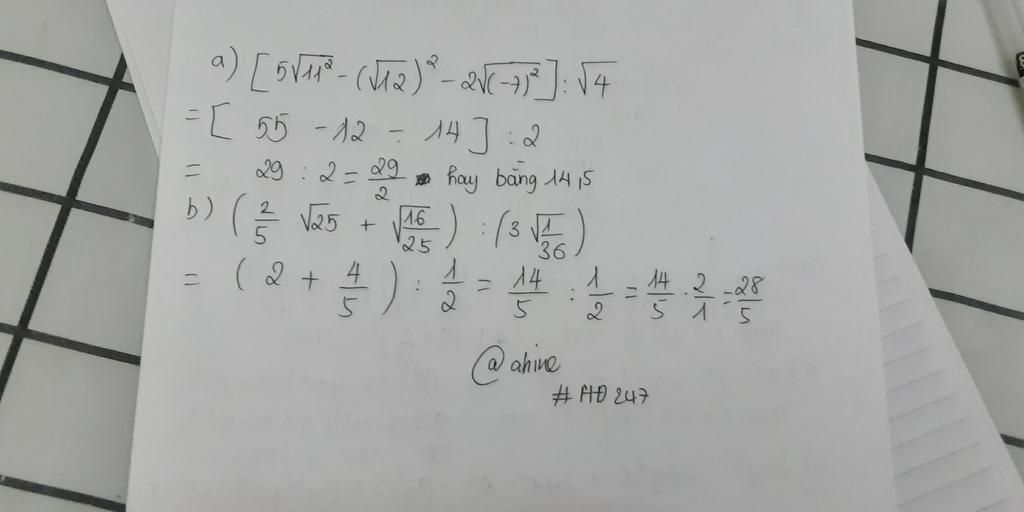 a) [5√11² - (√12)² - 2√(-7)²] : √4
= [ 55 - 12 - 14 ] : 2
= 29 : 2 = 29/2 hay bằng 14,5
b) (2/5 √25 + √16/25) : (3 √1/36)
= ( 2 + 4/5 ) : 1/2 = 14/5 : 1/2 = 14/5 . 2/1 = 28/5
@ahine
#AĐ247